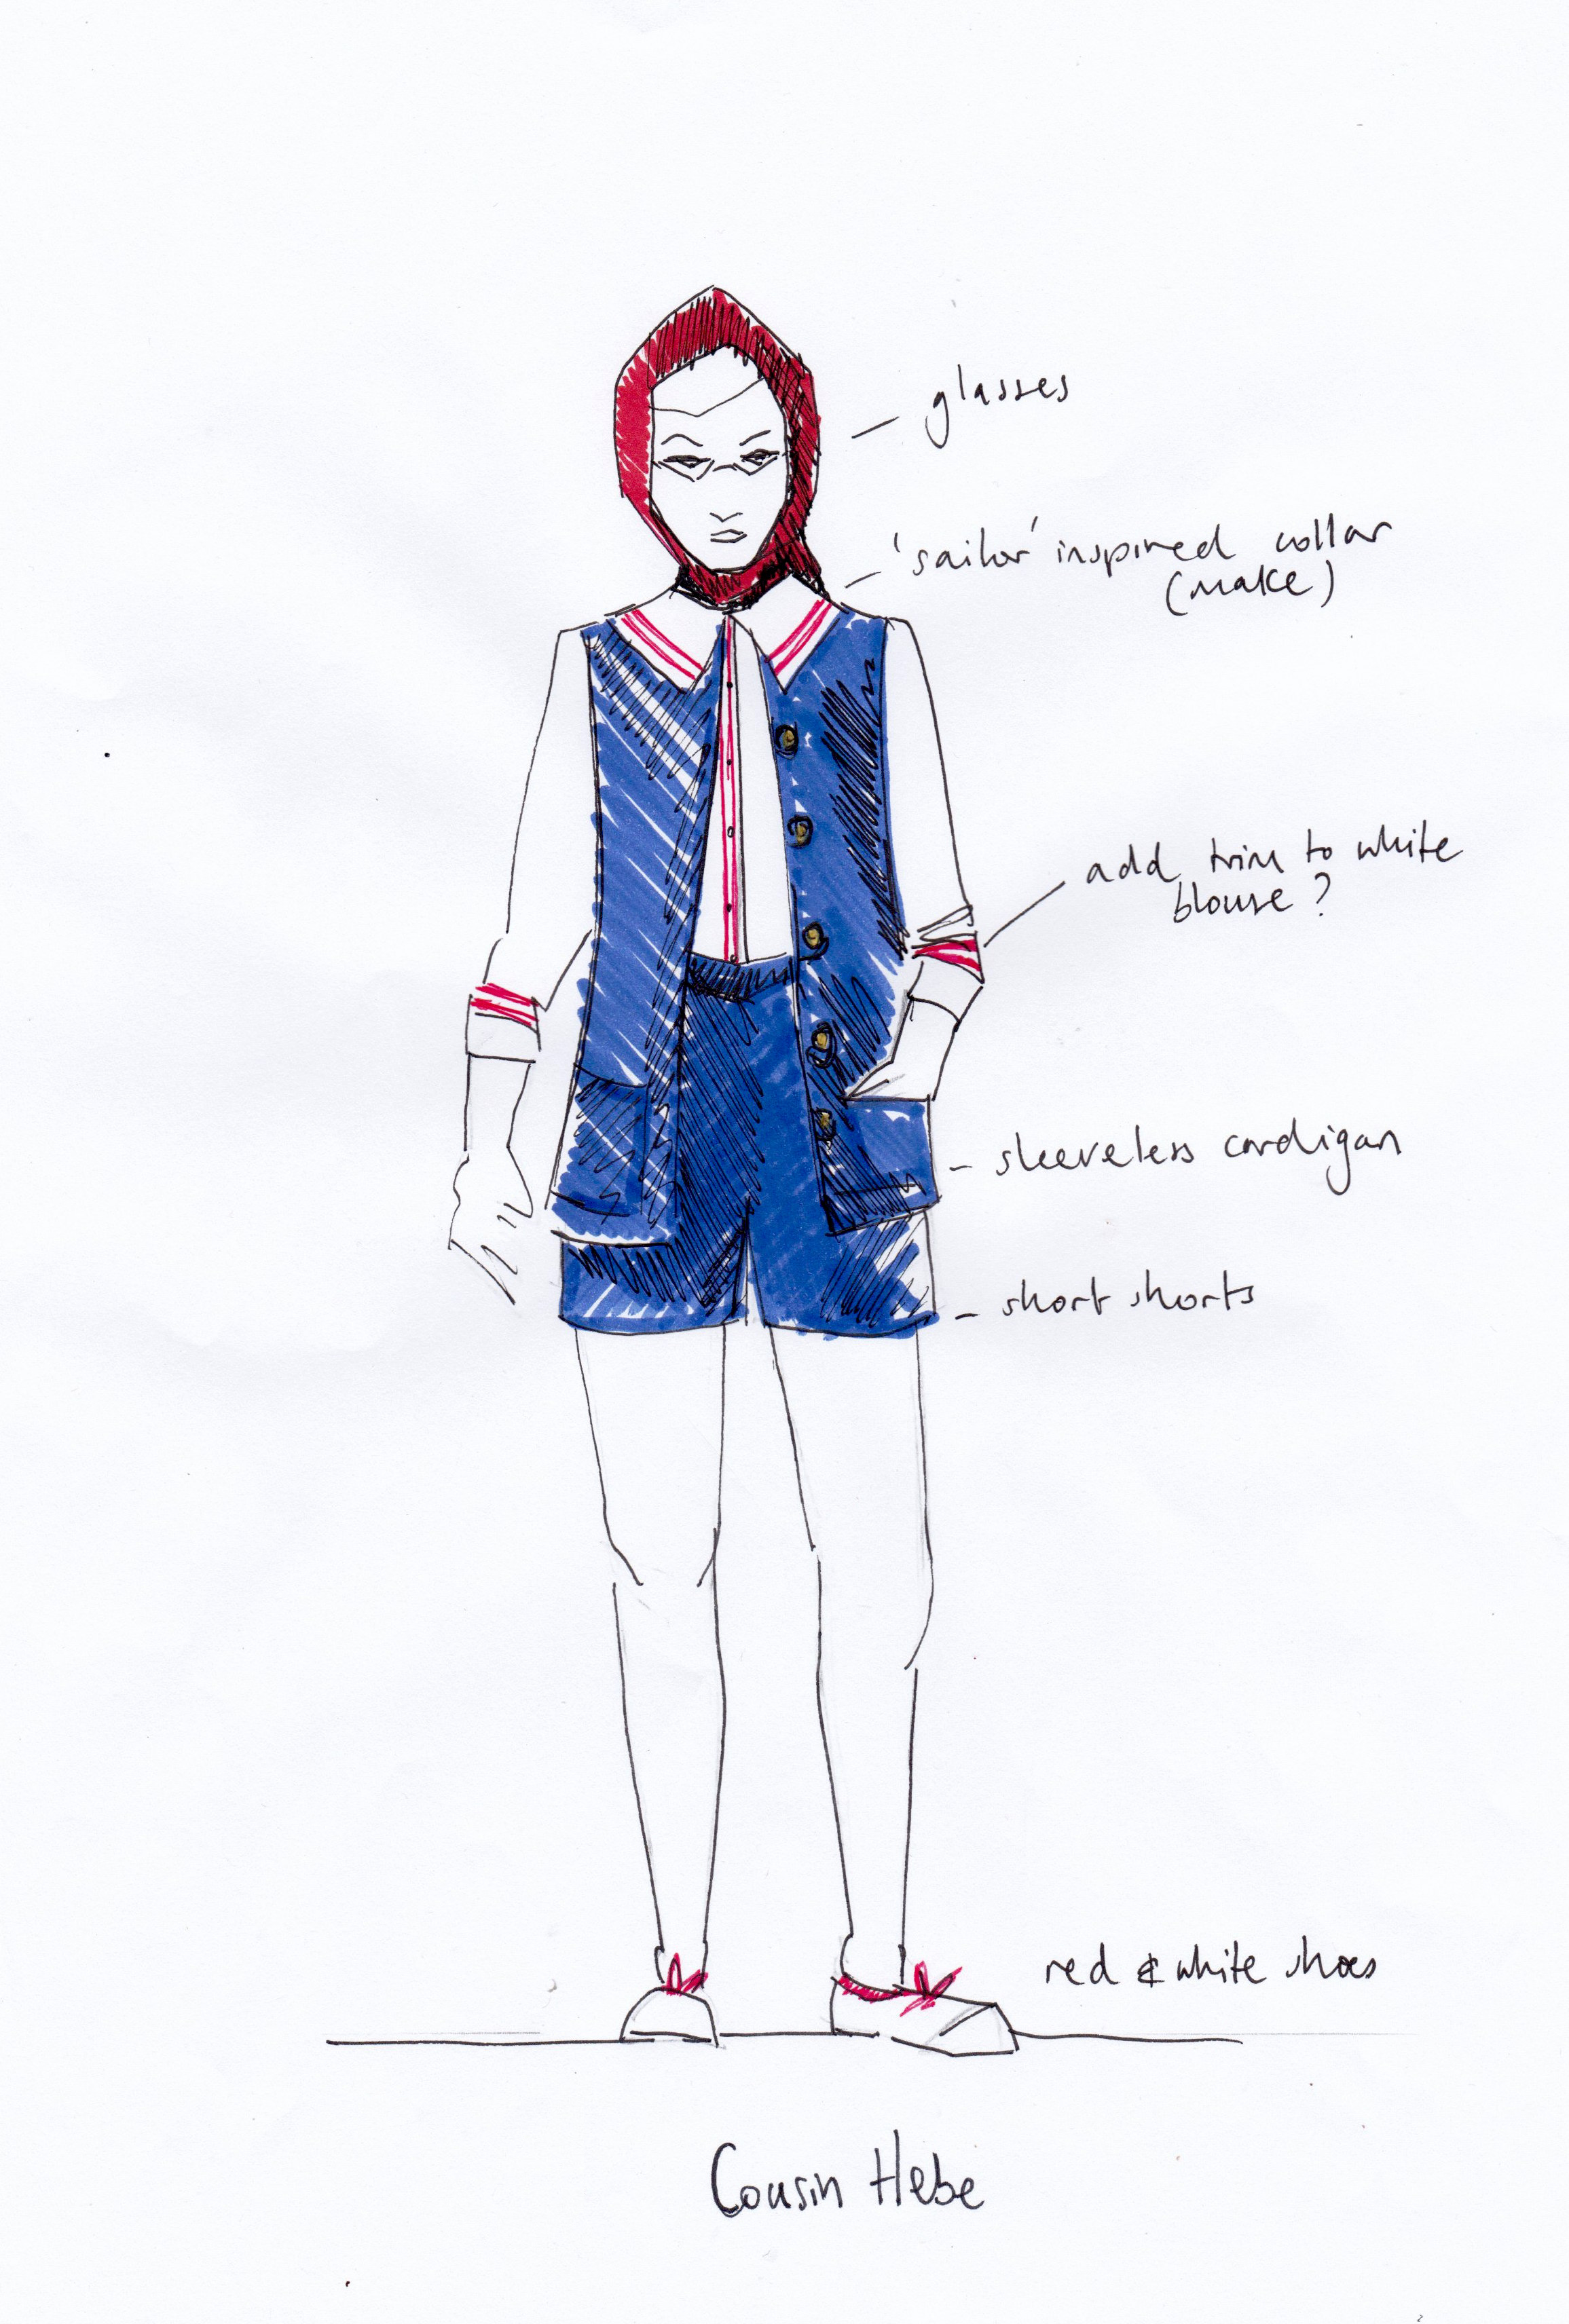 glasses
'sailor' inspired collar
(make)
add trim to white
blouse?
- sleeveless cardigan
- short shorts
red & white shoes
Cousin Hebe